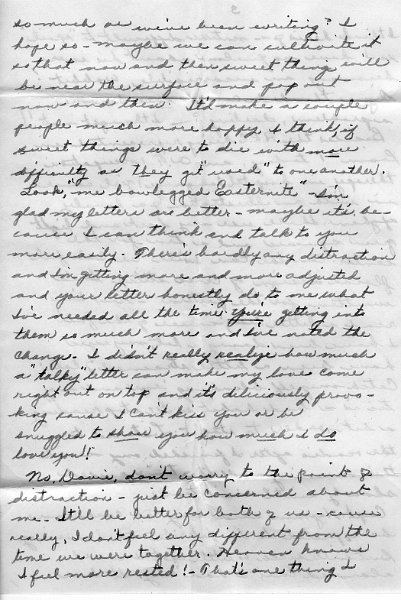 so much as we've been writing? I
hope so - maybe we can cultivate it
so that now and then sweet thing will
be near the surface and pop out
now and then. It'd make a couple
people much more happy I think, if
sweet things were to die with more
difficulty as they get "used" to one another.
Look, "me bowlegged Easternite" - I'm
glad my letters are better - maybe it's be-
cause I can think and talk to you
more easily. There's hardly any distraction
and I'm getting more and more adjusted
and your letter honestly do to me what
I've needed all the time. You're getting into
them so much more and I've noted the
change. I didn't really realize how much
a "talky" letter can made my love come
right out on top and it's deliciously provo-
king cause I can't kiss you or be
snuggled to show you how much I do
love you!!
No, Davie, don't worry to the point of
distraction - just be concerned about
me. It'll be better for both of us - cause
really, I don't feel any different from the
time we were together. Heaven knows
I feel more rested! - That's one thing I